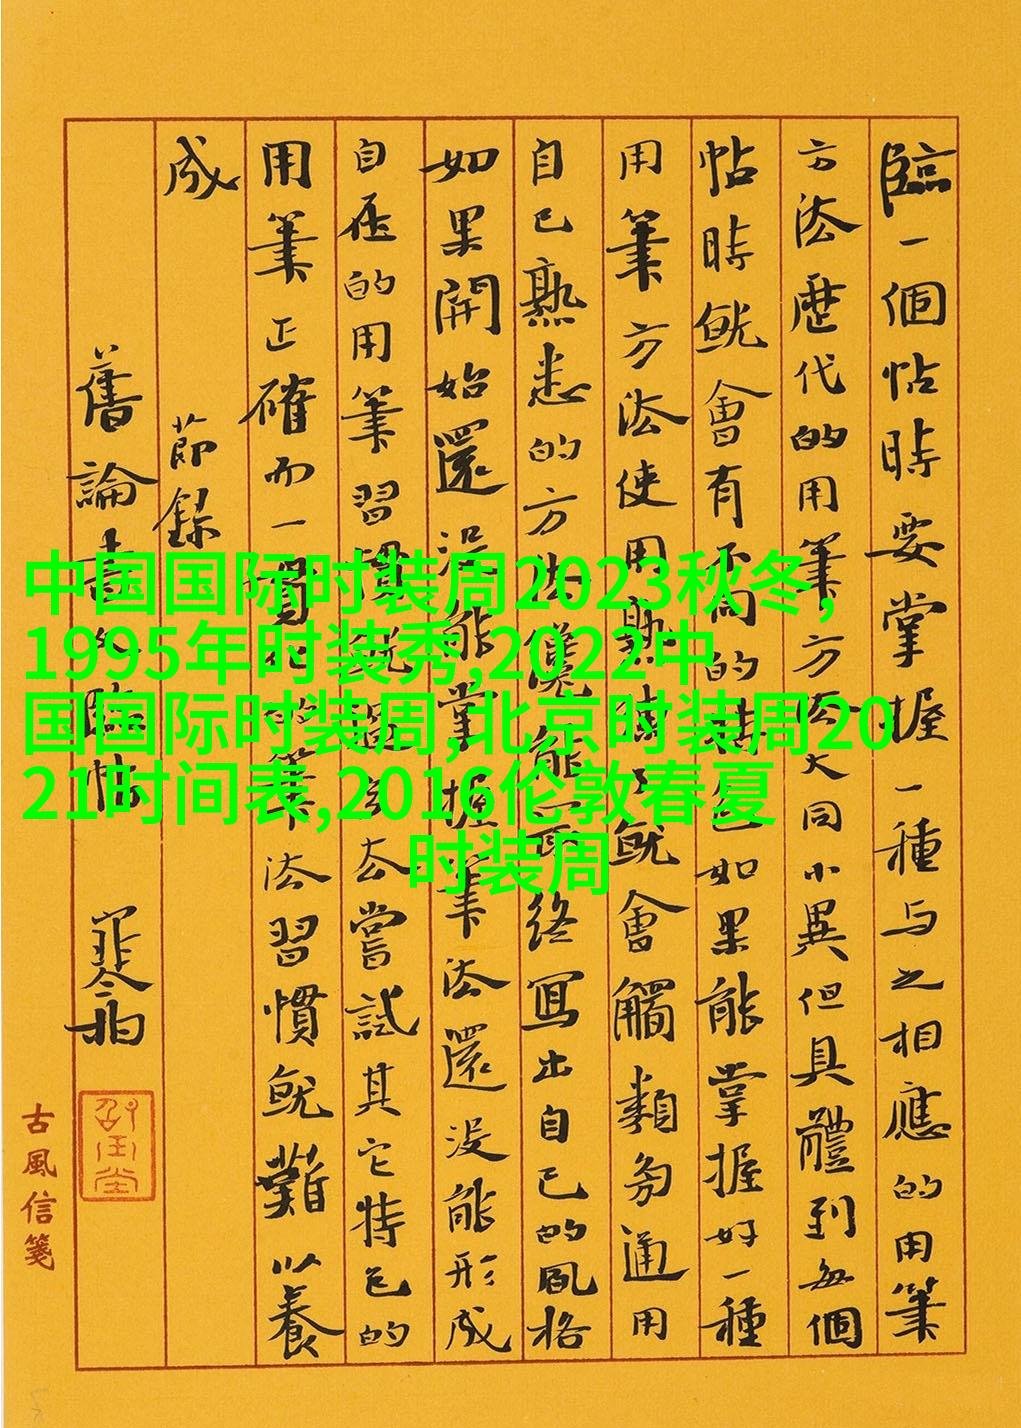 臨一個帖時要掌握一種与之相應的用筆
方法歷代的用筆方法大同小異但具體到每個
帖時就會有不同的特色如果能掌握好一種
用筆方法使用熟練了就會觸類旁通用
自己熟悉的方法能而終寫出自己的風格
如果開始還没能掌握筆法還没能形成
自在的用筆習慣就過去嘗試其它特色的
用筆正確而一貫的筆法習慣就難以養
成 節錄
舊論書之臨帖
古風信箋
中国国际时装周2023秋冬,
1995年时装秀,2022中
国国际时装周,北京时装周20
21时间表,2016伦敦春夏
时装周